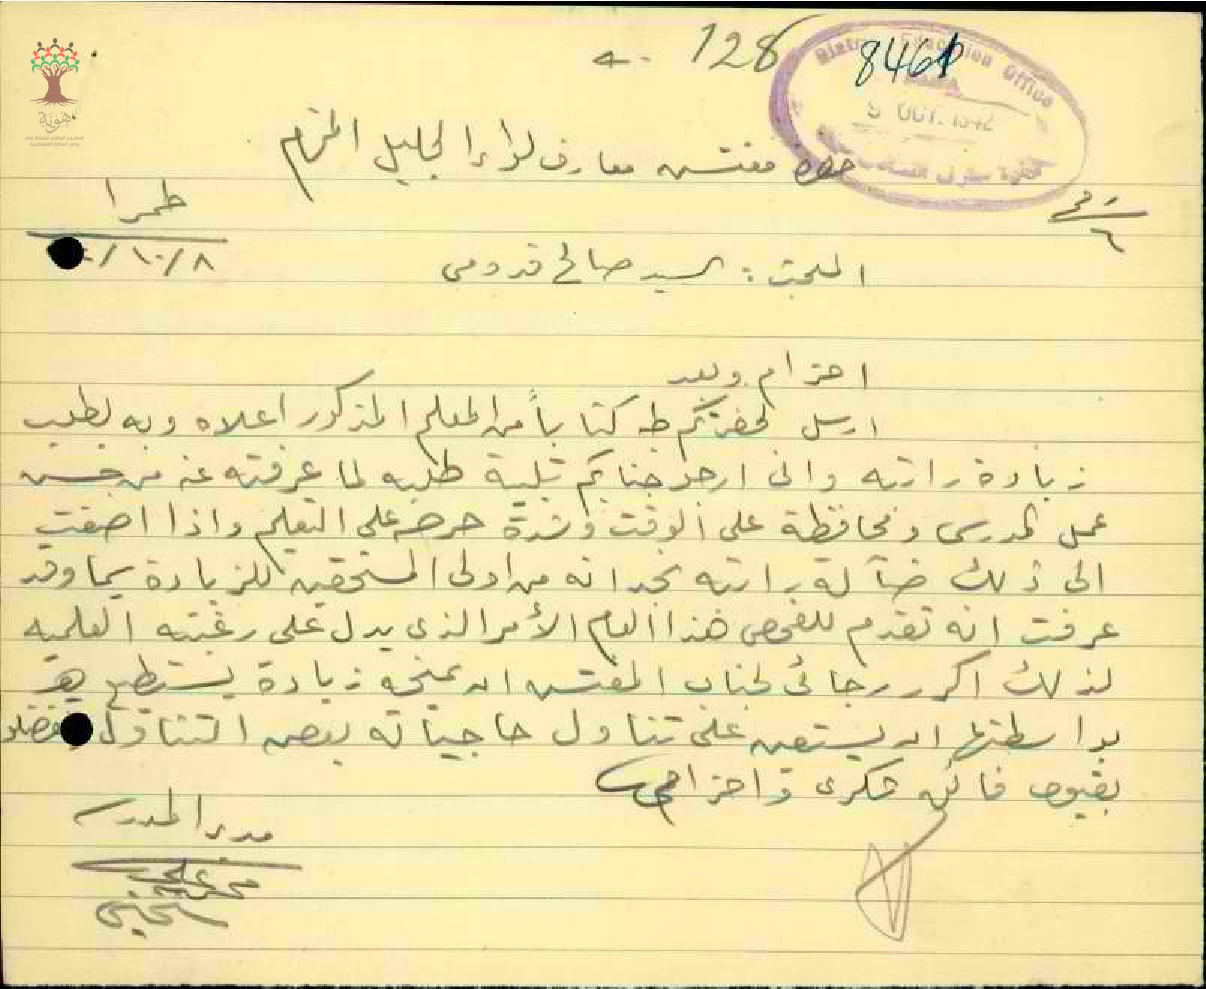 128
8461
District Education Office
9 OCT. 1942
حضرة مفتش معارف لواء الجليل المحترم
طمرا
٨/١٠/
٦
المبحث : السيد صالح قدومي
احترام وبعد
ارسل لحضرتكم طيه كتاباً من المعلم المذكور اعلاه وبه يطلب
زيادة راتبه واني ارجو جنابكم تلبية طلبه لما عرفته عنه من حسن
عمل مدرسي ومحافظة على الوقت وشدة حرصه على التعليم واذا اضفت
الى ذلك ضآلة راتبه نجد انه من اولى المستحقين للزيادة سيما وقد
عرفت انه تقدم للفحص هذا العام الأمر الذي يدل على رغبته العلمية
لذلك اكرر رجائي لجناب المفتش ان يمنحه زيادة يستطيع
بواسطتها ان يستعين على تناول حاجياته بعض التناول
بقبول فائق شكري واحترامي
مدير المدرسة
هوية